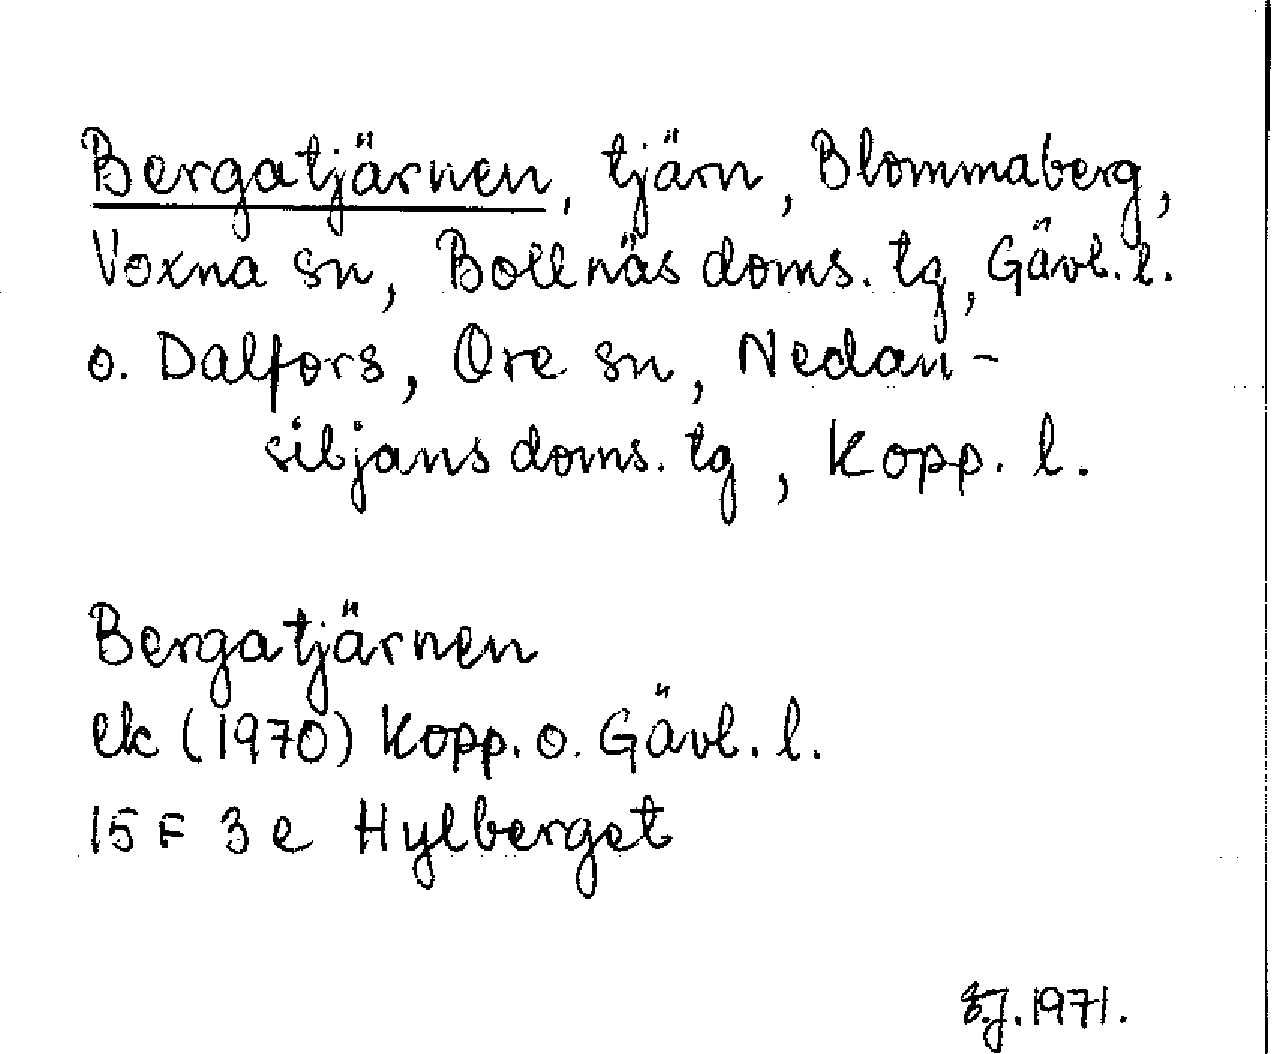 Bergatjärnen, tjärn, Blommaberg,
Voxna sn, Bollnäs doms. tg, Gävl. l.
o. Dalfors, Ore sn, Nedan-
siljans doms. tg, Kopp. l.
Bergatjärnen
ek (1970) Kopp. o. Gävl. l.
15 F 3 e Hylberget
1971.